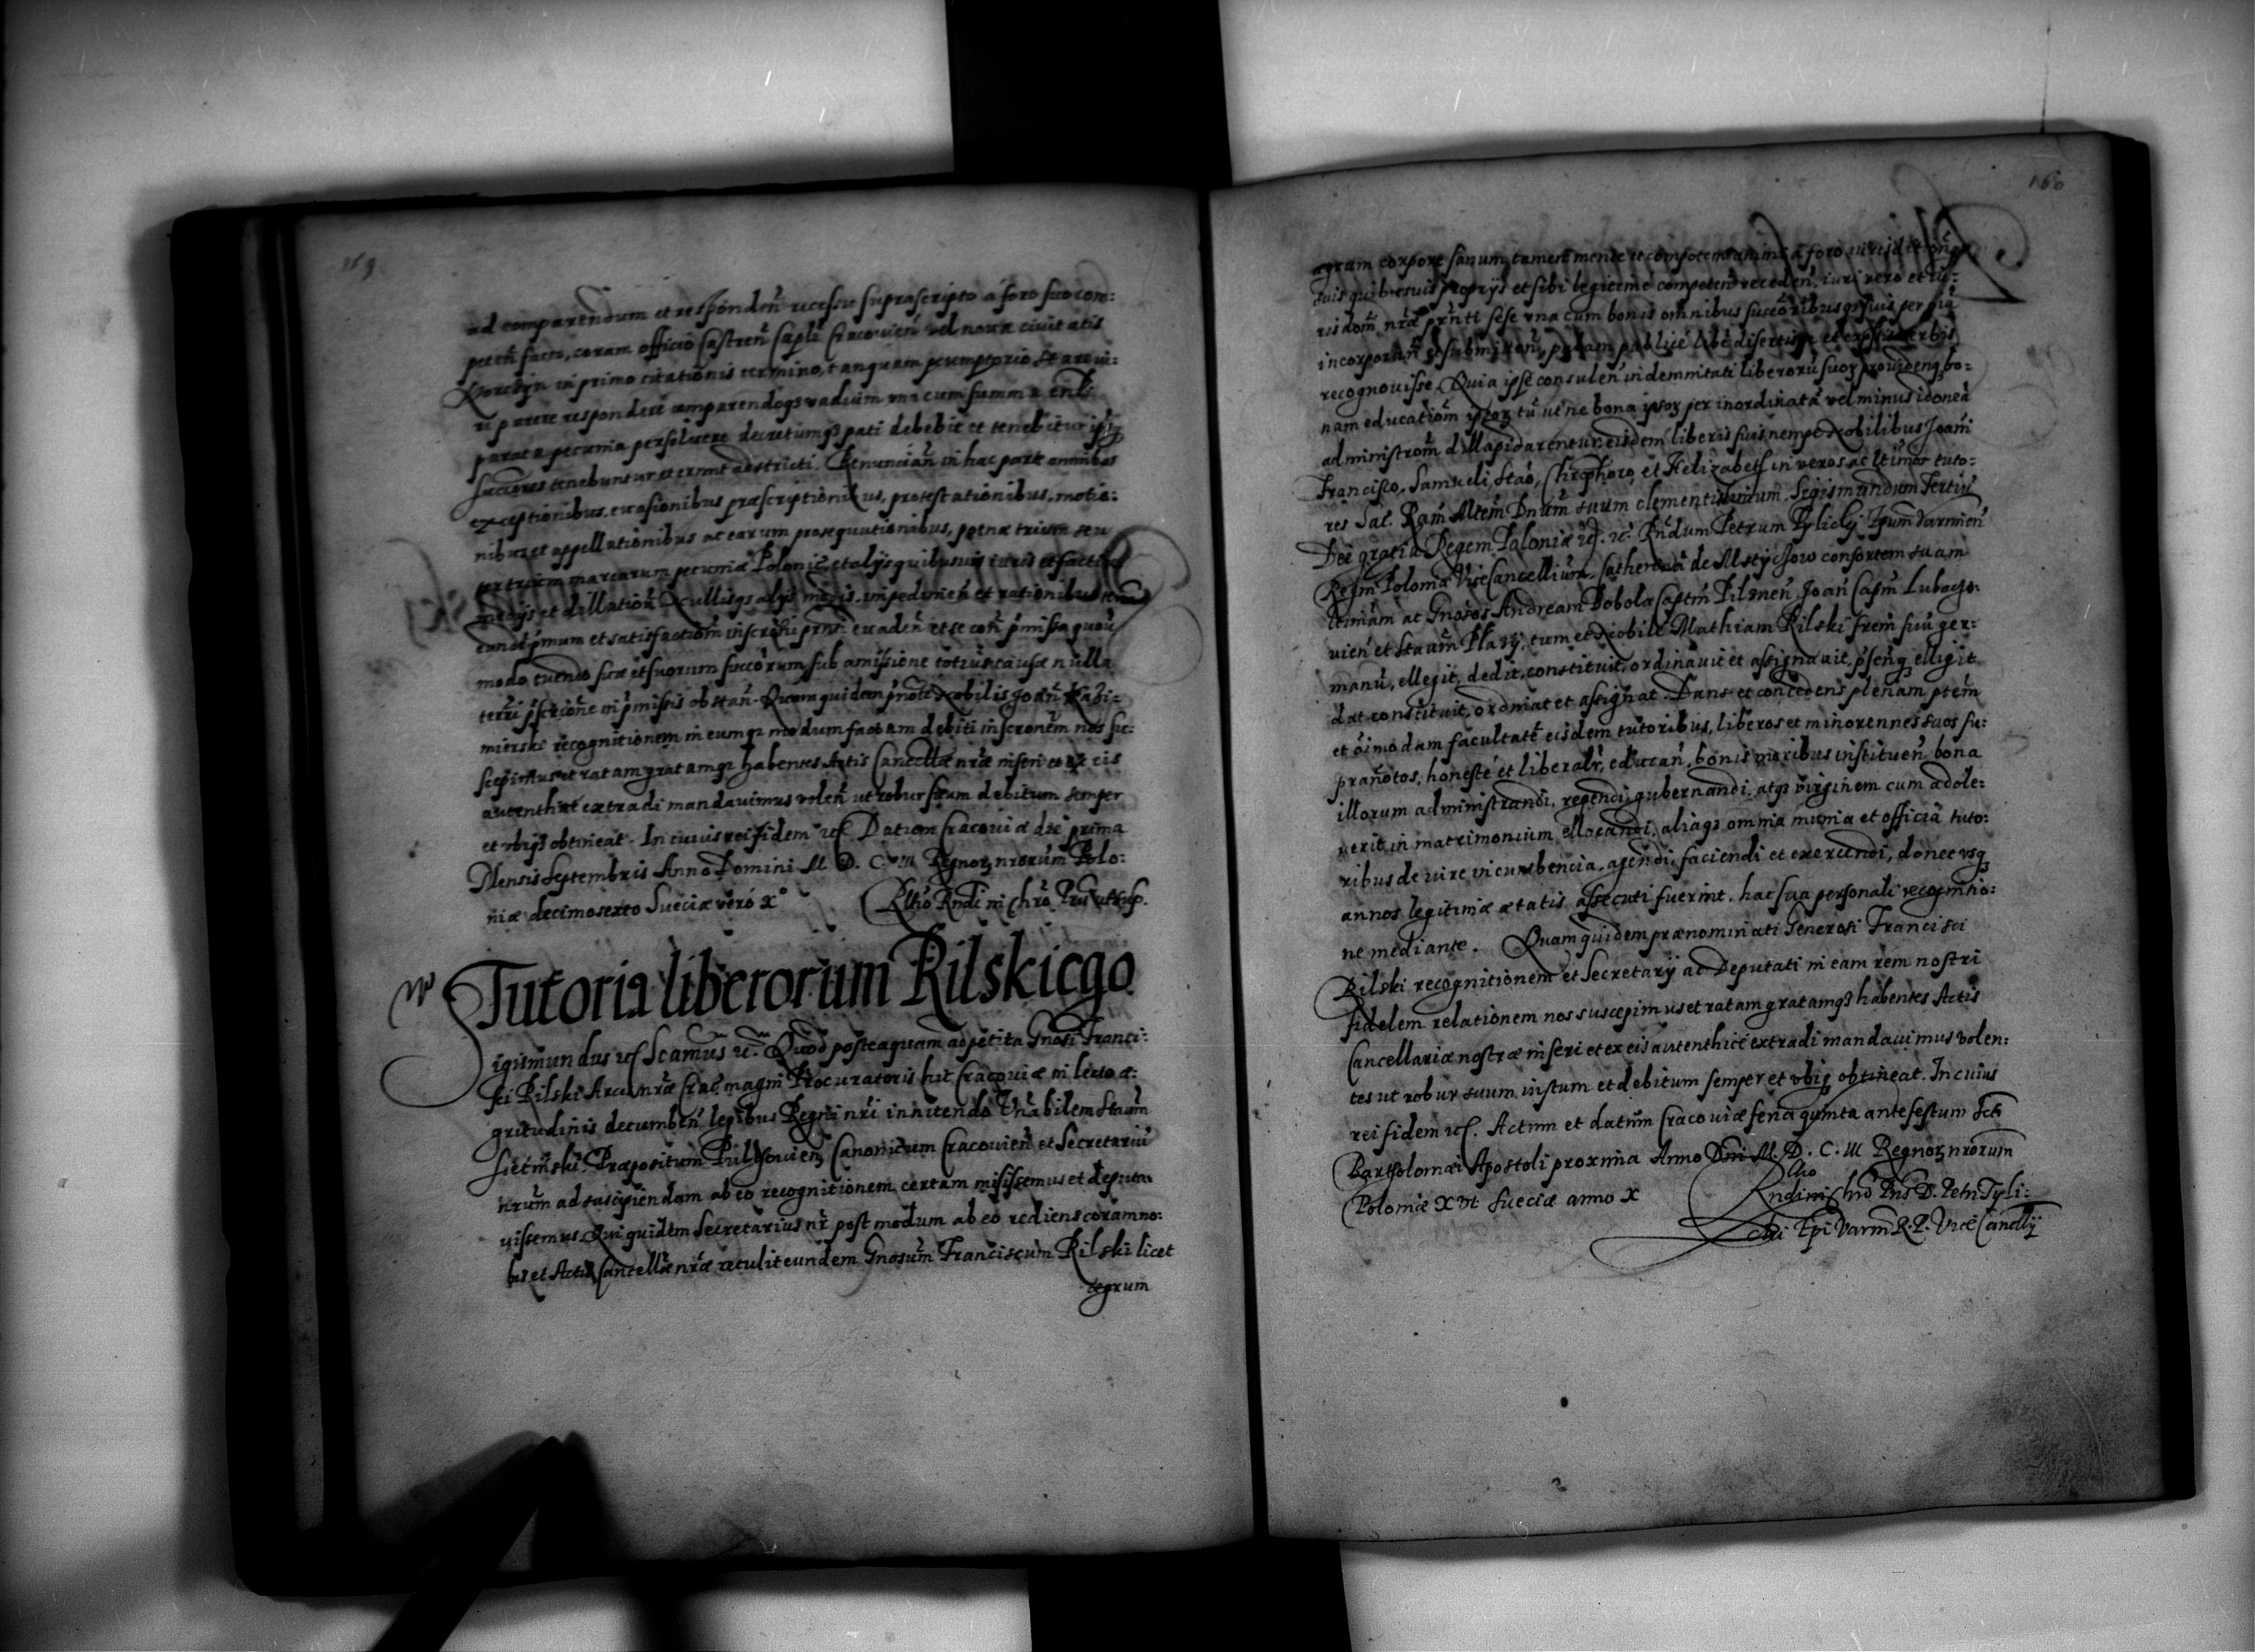 159
ad comparendum et responden̄ recessu suprascripto a foro suo com:
peten̄ facto, coram officio Castren̄ Capli Cracovien̄ vel novæ civitatis
Korczyn in primo citationis termino, tanquam peremptorio stare iu:
ri parere respondere comparendoqз vadium una cum summa
parata pecunia persoluere decretumqз pati debebit et tenebitur ipsiqз
succores tenebuntur et erunt adstricti. Renuncian̄ in hac parte omnibus
exceptionibus, evasionibus præscriptionibus, protestationibus, motio:
nibus et appellationibus ac earum prosequutionibus, poenæ trium seu
ter trium marcarum pecuniæ Polonic. et alijs quibusuis iuris et facti re
medijs et dillation̄ nullisqз alijs modis, impedimen̄ et rationibus
eundē pmum et satisfactiōm inscrōni pnti evaden̄ et se con̄ pmissa quouis
modo tuendo suæ et suorum succōrum sub amissione totius causæ nulla
terrī pscriōne in pmissis obstan̄. Quam quidem pnote Nobilis Joan̄ Kazi:
mierski recognitionem in eumqз modum factam debiti inscronēm nos su:
scepimus et ratam gratamqз habentes Actis Cancellæ nræ inseri et ex eis
autenthice extradi mandavimus volen̄ ut robur suum debitum semper
et ubiqз obtineat. In cuius rei fidem etc. Datum Cracoviæ die prima
Mensis Septembris Anno Domini M. D. C. III Regnorз nrorum Polo:
niæ decimosexto Sueciæ verò X°
Rltio Rndi in Chrō Pris ut sup.
Tutoria liberorum Rilskiego
Sigismundus etc. Scamus etc. Quod posteaquam ad petita Gnosi Franci:
ski Rilski Arcis nræ Crac. magni Procuratoris hic Cracoviæ in lecto æ:
gritudinis decumben̄ legibus Regni nri innitendo Vnābilem Staum
Præpositum Canonicum Cracovien̄ et Secretariū
nrūm ad suscipiendam ab eo recognitionem certam misissemus et deputa:
vissemus. Qui quidem Secretarius nr̄ post modum ab eo rediens coram no:
bis et Actis Cancellæ nræ retulit eundem Gnosum Franciscum Rilski licet
ægrum
160
ægrum corpore sanum tamen mente et compotem animi a foro iurisdictioni
suis quibusuis proprijs et sibi legitime competen̄ receden̄, iuri vero et iu:
risdom̄ nræ prn̄ti sese una cum bonis omnibus succōribusqз suis per
incorporan̄ et submitten̄, palam publice libē disertisqз et expssis verbis
recognovisse. Quia ipse consulen̄ indemnitati liberorū suorз providenqз bo:
nam educatiom̄ ipsorз tū ut ne bona ipsorз per inordinatā vel minus idoneā
administrom̄ dillapidarentur eisdem liberis suis nempe Nobilibus Joanī
Francisco, Samueli, Stāo, Chrophoro, et Helizabeth in veros ac ltimos tuto:
res Sac. Ram Mtem Dnum suum clementissimum Sigismundum Tertiū
Dei gratia Regem Poloniæ etc. etc. Rndum Petrum Tylicky Epum Varmien̄
Regni Poloniæ ViceCancellium, Catherinā de Mstyczow consortem suam
ltimam ac Gnosos Andream Bobola Castm̄ Pilznen̄ Joan̄ Lubaczo:
vien̄ et tum et Nobilē Mathiam Rilski frem̄ suū ger:
manū, ellegit, dedit, constituit, ordinavit et assignavit, pn̄senqз elligit
dat constituit, ordinat et assignat. Dans et concedens plenam ptem̄
et oi̅modam facultatē eisdem tutoribus, liberos et minorennes suos su:
pranotos, honeste et liberalr, educan̄, bonis moribus instituen̄, bona
illorum administrandi, regendi, gubernandi, atqз virginem cum adole:
verit in matrimonium ellocandi, aliaqз omnia munia et officia tuto:
ribus de iure incumbencia, agendi, faciendi et exercendi, donec usqз
annos legitimæ ætatis assecuti fuerint, hac sua personali recognitio:
ne mediante. Quam quidem prænominati Generosi Francisci
Rilski recognitionem et Secretarij ac Deputati in eam rem nostri
fidelem relationem nos suscepimus et ratam gratamqз habentes Actis
Cancellariæ nostræ inseri et ex eis autenthice extradi mandavimus volen:
tes ut robur suum iustum et debitum semper et ubiqз obtineat. In cuius
rei fidem etc. Actum et datum Cracoviæ feria quinta ante festum Scti
Bartholomæi Apostoli proxima Anno Dni M. D. C. III Regnorз nrorum
Poloniæ XVI Sueciæ anno X
Rltio
Rndi in Chrō Pris D. Petri Tyli:
cki Epi Varm R. P. ViceCancllij